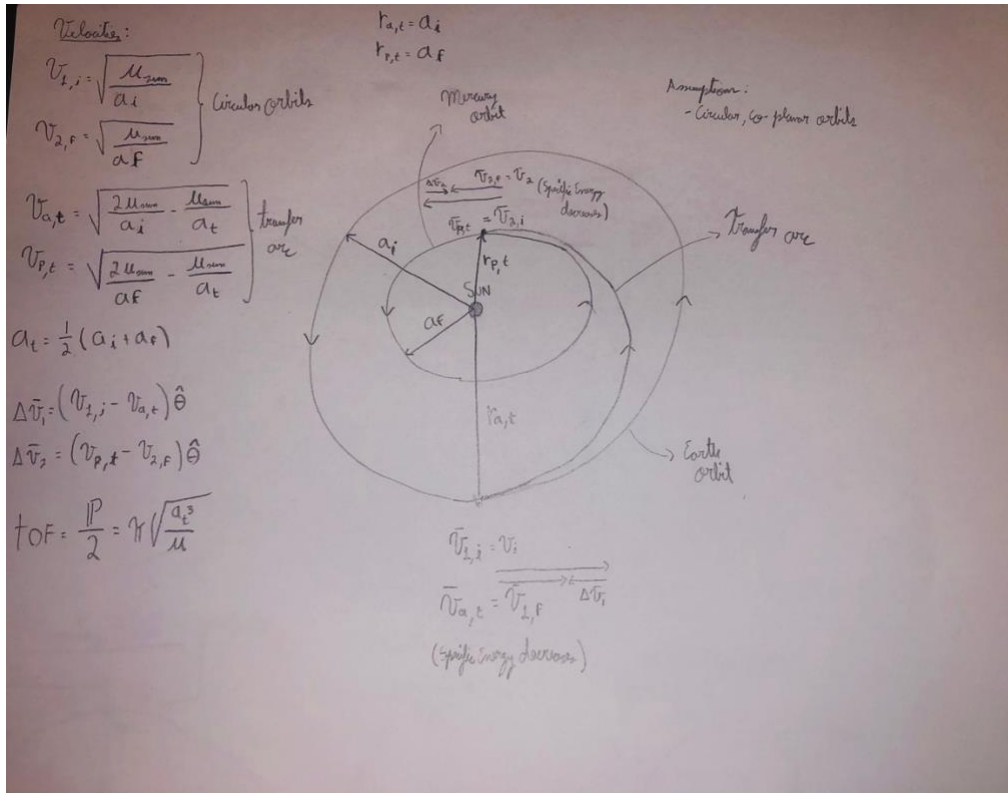 Velocities:
V_{1,i} = \sqrt{\frac{μ_{sun}}{a_i}}
V_{2,F} = \sqrt{\frac{μ_{sun}}{a_F}}
Circular orbits
V_{a,t} = \sqrt{\frac{2μ_{sun}}{a_i} - \frac{μ_{sun}}{a_t}}
V_{p,t} = \sqrt{\frac{2μ_{sun}}{a_F} - \frac{μ_{sun}}{a_t}}
transfer
arc
a_t = \frac{1}{2}(a_i + a_F)
Δv̄_1 = (V_{1,i} - V_{a,t}) θ̂
Δv̄_2 = (V_{p,t} - V_{2,F}) θ̂
tOF = \frac{ℙ}{2} = π\sqrt{\frac{a_t^3}{μ}}
r_{a,t} = a_i
r_{p,t} = a_F
Assumptions:
- Circular, co-planar orbits
Mercury
orbit
Δv̄_2
v̄_{2,F} = v_2 (Specific Energy
decreases)
v̄_{p,t} = v̄_{2,i}
transfer arc
a_i
r_{p,t}
SUN
a_F
r_{a,t}
Earth
orbit
v̄_{1,i} = v_i
v̄_{a,t} = v̄_{1,F}
Δv̄_1
(Specific Energy decreases)